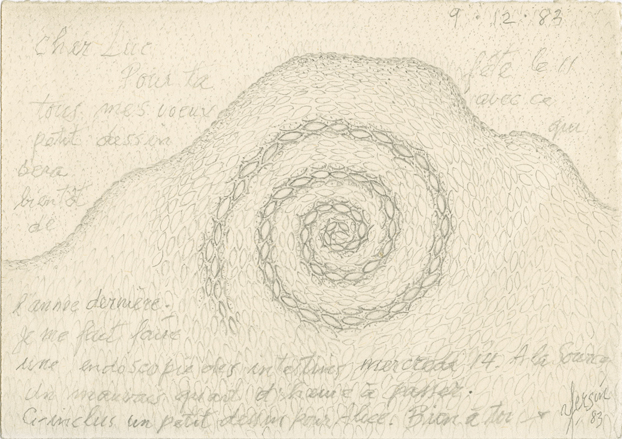 9.12.83
Cher Luc
Pour ta fête le 11
tous mes voeux avec ce
petit dessin qui
sera
bientôt
de
l'année dernière.
Je me fait faire
une endoscopie des intestins mercredi 14. A la Source
un mauvais quart d'heure à passer.
Ci-inclus un petit dessin pour Alice. Bien à toi
83